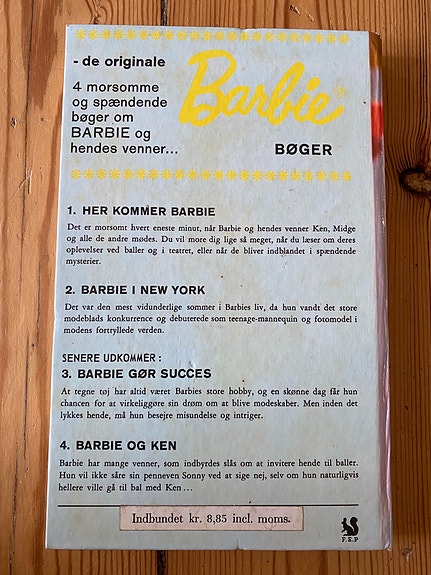 - de originale
Barbie®
4 morsomme
og spændende
bøger om
BARBIE og
hendes venner...
BØGER
1. HER KOMMER BARBIE
Det er morsomt hvert eneste minut, når Barbie og hendes venner Ken, Midge
og alle de andre mødes. Du vil more dig lige så meget, når du læser om deres
oplevelser ved baller og i teatret, eller når de bliver indblandet i spændende
mysterier.
2. BARBIE I NEW YORK
Det var den mest vidunderlige sommer i Barbies liv, da hun vandt det store
modeblads konkurrence og debuterede som teenage-mannequin og fotomodel i
modens fortryllede verden.
SENERE UDKOMMER:
3. BARBIE GØR SUCCES
At tegne tøj har altid været Barbies store hobby, og en skønne dag får hun
chancen for at virkeliggøre sin drøm om at blive modeskaber. Men inden det
lykkes hende, må hun besejre misundelse og intriger.
4. BARBIE OG KEN
Barbie har mange venner, som indbyrdes slås om at invitere hende til baller.
Hun vil ikke såre sin penneven Sonny ved at sige nej, selv om hun naturligvis
hellere ville gå til bal med Ken...
Indbundet kr. 8,85 incl. moms.
F.E.P